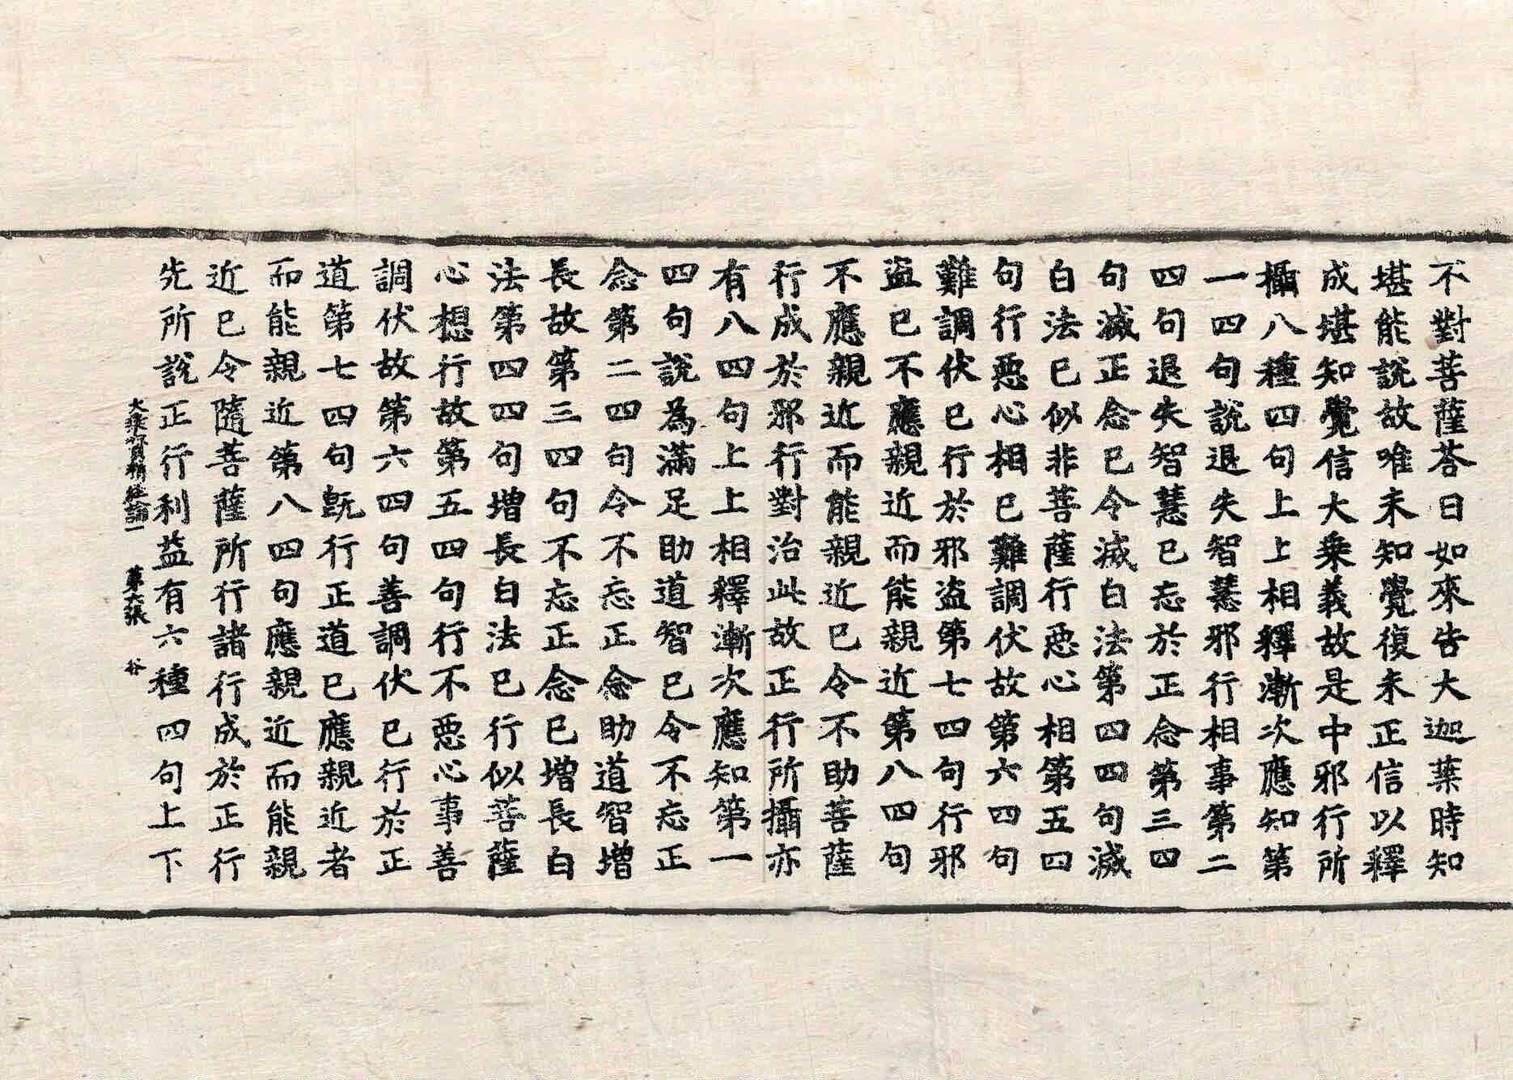 不對菩薩荅曰如來告大迦葉時知
堪能說故唯未知覺復未正信以釋
成堪知覺信大乘義故是中邪行所
攝八種四句上上相釋漸次應知第
一四句說退失智慧邪行相事第二
四句退失智慧已忘於正念第三四
句滅正念已令滅白法第四四句滅
白法已似非菩薩行惡心相第五四
句行惡心相已難調伏故第六四句
難調伏已行於邪盜第七四句行邪
盜已不應親近而能親近第八四句
不應親近而能親近已令不助菩薩
行成於邪行對治此故正行所攝亦
有八四句上上相釋漸次應知第一
四句說為滿足助道智已令不忘正
念第二四句令不忘正念助道智增
長故第三四句不忘正念已增長白
法第四四句增長白法已行似菩薩
心想行故第五四句行不惡心事善
調伏故第六四句善調伏已行於正
道第七四句既行正道已應親近者
而能親近第八四句應親近而能親
近已令隨菩薩所行諸行成於正行
先所說正行利益有六種四句上下
大乘寶積經論一　苐六張　谷